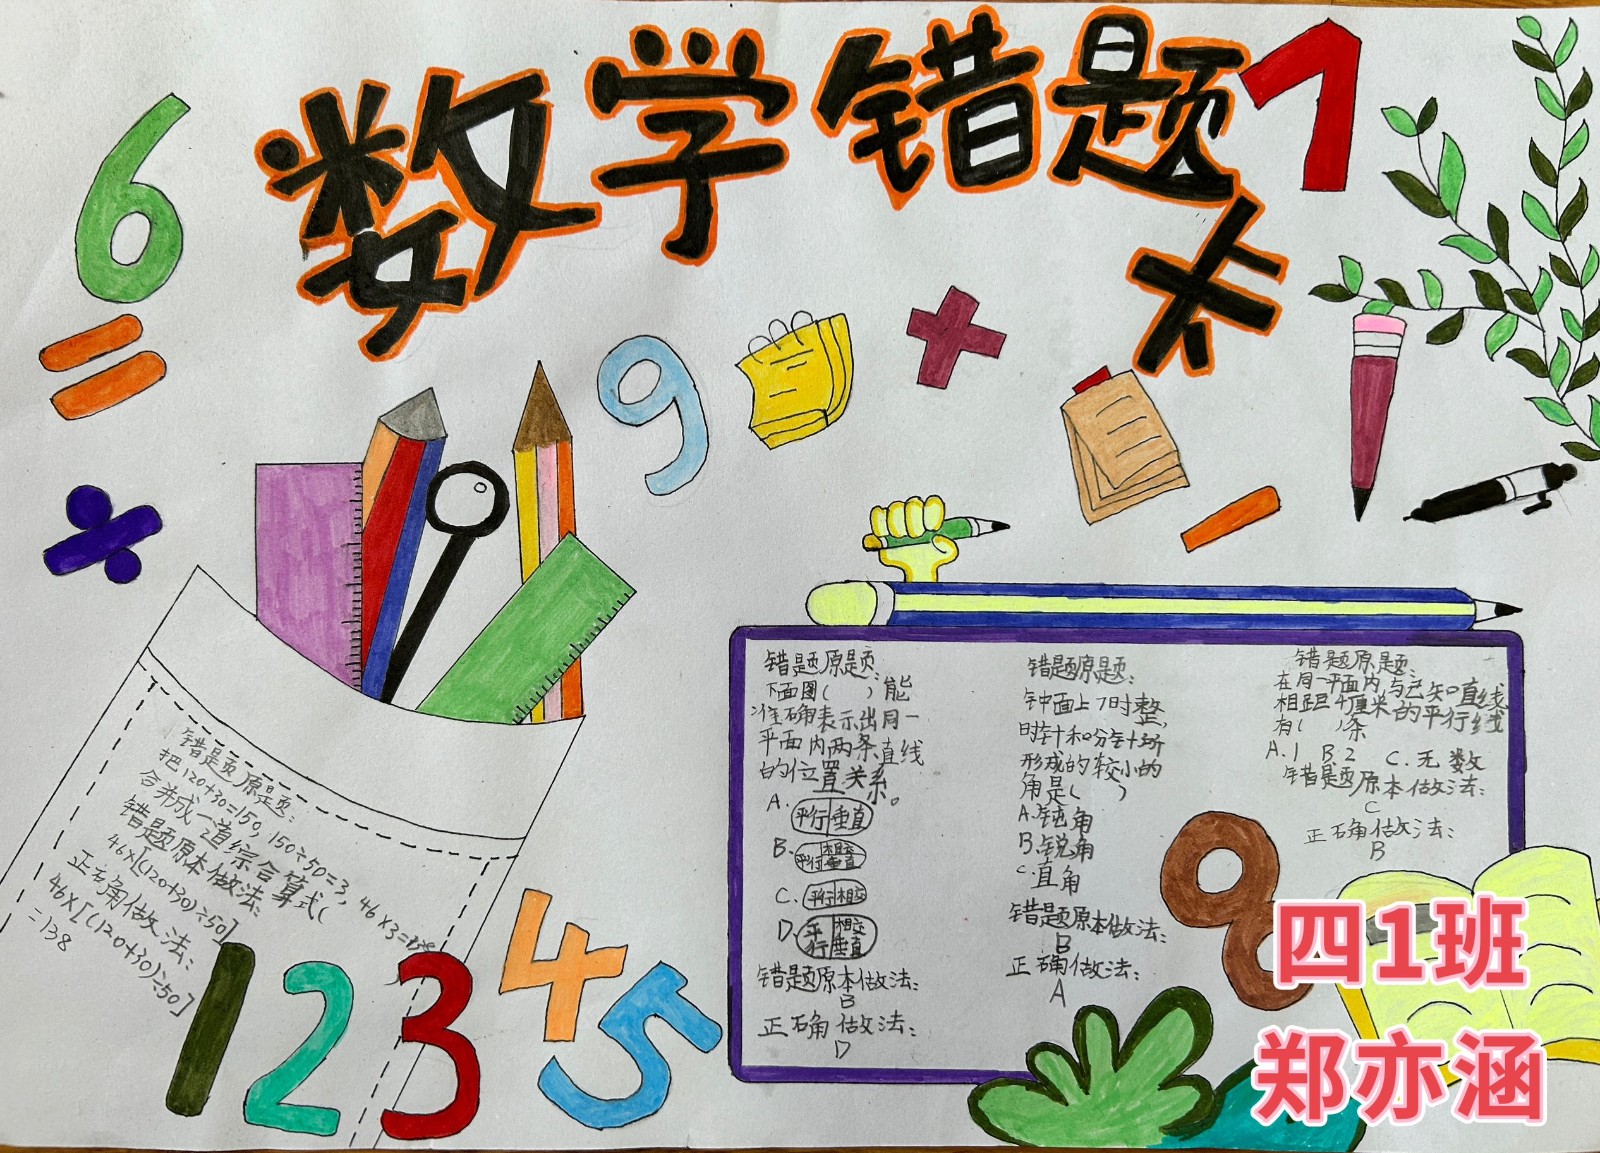 数学错题
卡
6
=
÷
9
+
-
7
错题原题:
把120+30=150, 150÷50=3, 46×3=138
合并成一道综合算式(
错题原本做法:
46×[120+30)÷50]
正确做法:
46×[(120+30)÷50]
=138
1 2 3 4 5
错题原题:
下面图( )能
准确表示出同一
平面内两条直线
的位置关系。
A. 平行 垂直
B. 平行 相交 垂直
C. 平行 相交
D. 平行 相交 垂直
错题原本做法:
B
正确做法:
D
错题原题:
钟面上7时整,
时针和分针所
形成的较小的
角是( )
A.钝角
B.锐角
C.直角
错题原本做法:
B
正确做法:
A
错题原题:
在同一平面内,与已知直线
相距4厘米的平行线
有( )条
A.1 B.2 C.无数
错题原本做法:
C
正确做法:
B
8
四1班
郑亦涵